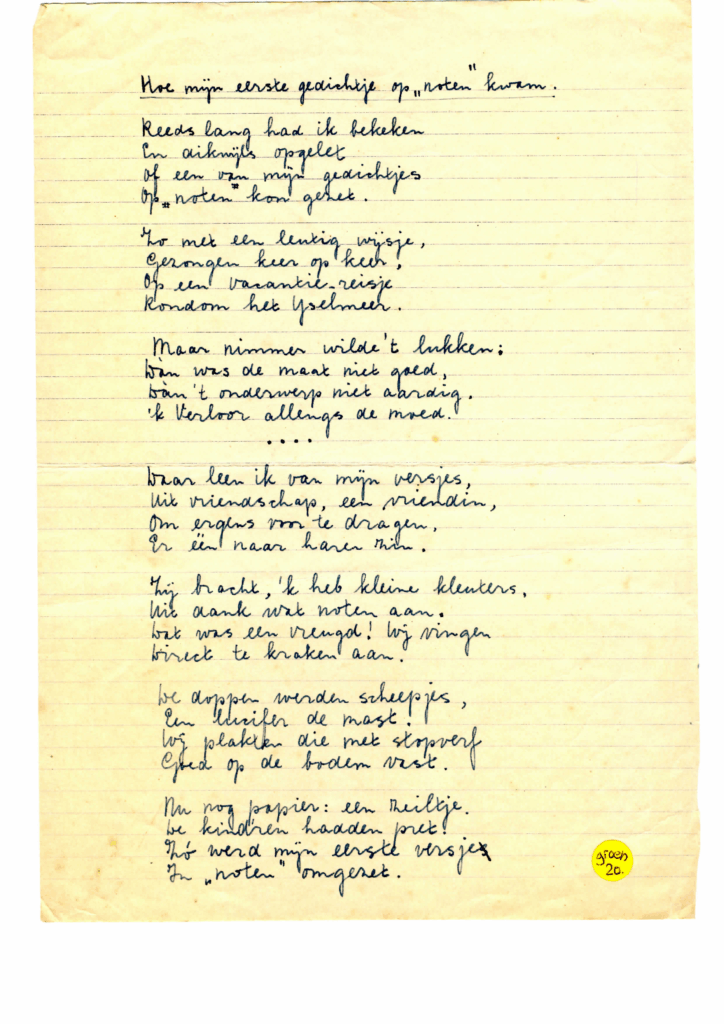 Hoe mijn eerste gedichtje op „noten" kwam.
Reeds lang had ik bekeken
En dikwijls opgelet
Of een van mijn gedichtjes
Op „noten" kon gezet.
Zo met een leutig wijsje,
Gezongen keer op keer,
Op een vacantie-reisje
Rondom het Yselmeer.
Maar nimmer wilde 't lukken:
Dàn was de maat niet goed,
Dàn 't onderwerp niet aardig.
'k Verloor allengs de moed.
....
Daar leen ik van mijn versjes,
Uit vriendschap, een vriendin,
Om ergens voor te dragen,
Er één naar haren zin.
Zij bracht, 'k heb kleine kleuters,
Uit dank wat noten aan.
Dat was een vreugd! Wij vingen
Direct te kraken aan.
De doppen werden scheepjes,
Een lucifer de mast.
Wij plakten die met stopverf
Goed op de bodem vast.
Nu nog papier: een zeiltje.
De kind'ren hadden pret!
Zó werd mijn eerste versje
In „noten" omgezet.
groen
20.